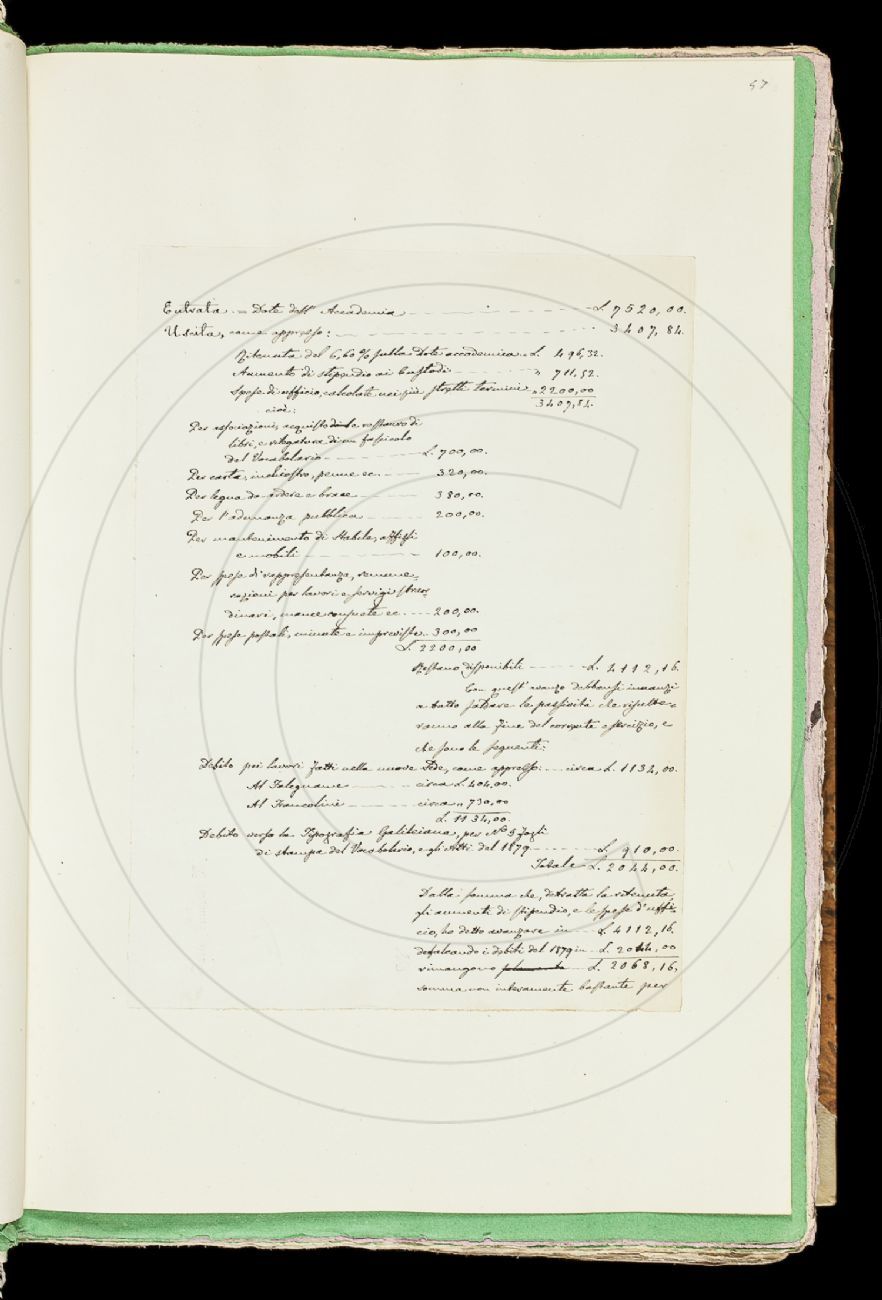 57
Entrata. = Dote dell'Accademia L. 7520,00.
Uscita, come appresso: 3407,84.
Ritenuta del 6,60% sulla Dote accademica L. 496,32.
Aumento di stipendio ai Custodi " 711,52.
Spese di ufficio, calcolate nei più stretti termini " 2200,00
3407,84.
cioè:
Per associazioni, acquisto e restauro di
libri, e rilegatura di un fascicolo
del Vocabolario L. 700,00.
Per carta, inchiostro, penne ec. 320,00.
Per legna da ardere e brace 380,00.
Per l'adunanza pubblica 200,00.
Per mantenimento di Stabile, affissi
e mobili 100,00.
Per spese di rappresentanza, remune-
razioni per lavori e servigi straor-
dinari, mance consuete ec. 200,00.
Per spese postali, minute e impreviste 300,00
L. 2200,00
Restano disponibili L. 4112,16
Con quest'avanzo debbonsi innanzi
a tutto saldare le passività che risulte-
ranno alla fine del corrente esercizio, e
che sono le seguenti:
Debito pei lavori fatti nella nuova Sede, come appresso: circa L. 1134,00.
Al Falegname circa L. 404,00.
Al Francolini circa " 730,00
L. 1134,00.
Debito verso la Tipografia Galileiana, per N° 3 fogli
di stampa del Vocabolario, e gli Atti del 1879 L. 910,00.
Totale L. 2044,00.
Dalla somma che, detratta la ritenuta,
gli aumenti di stipendio, e le spese d'uffi-
cio, ho detto avanzare in L. 4112,16.
defalcando i debiti del 1879 in L. 2044,00
rimangono solamente L. 2068,16,
somma non interamente bastante per